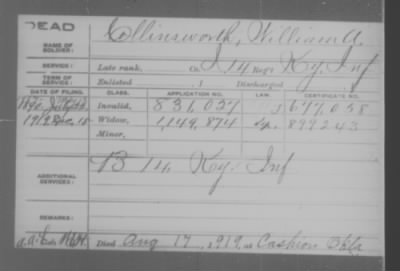 DEAD
NAME OF SOLDIER: Collinsworth, William A.
SERVICE: Late rank, Co. I 14 Reg't Ky. Inf
TERM OF SERVICE: Enlisted 1 Discharged
DATE OF FILING. CLASS. APPLICATION NO. LAW. CERTIFICATE NO.
1890 Invalid, 831,037 J 677,038
1919 Dec. 15 Widow, 1,149,874 899243
Minor,
ADDITIONAL SERVICES: B 14 Ky. Inf
REMARKS:
Died Aug 17, 1919, at Cashion Okla